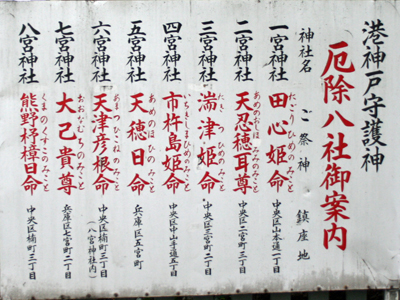 港神戸守護神
厄除八社御案内
神社名 ご祭神 鎮座地
一宮神社 田心姫命 たごりひめのみこと 中央区山本通一丁目
二宮神社 天忍穂耳尊 あめのおしほみみのみこと 中央区二宮町三丁目
三宮神社 湍津姫命 たきつひめのみこと 中央区三宮町二丁目
四宮神社 市杵島姫命 いちきしまひめのみこと 中央区中山手通五丁目
五宮神社 天穂日命 あめのほひのみこと 兵庫区五宮町
六宮神社 天津彦根命 あまつひこねのみこと 中央区楠町三丁目
(八宮神社内)
七宮神社 大己貴尊 おおなむちのみこと 兵庫区七宮町二丁目
八宮神社 熊野杼樟日命 くまのくすびのみこと 中央区楠町三丁目